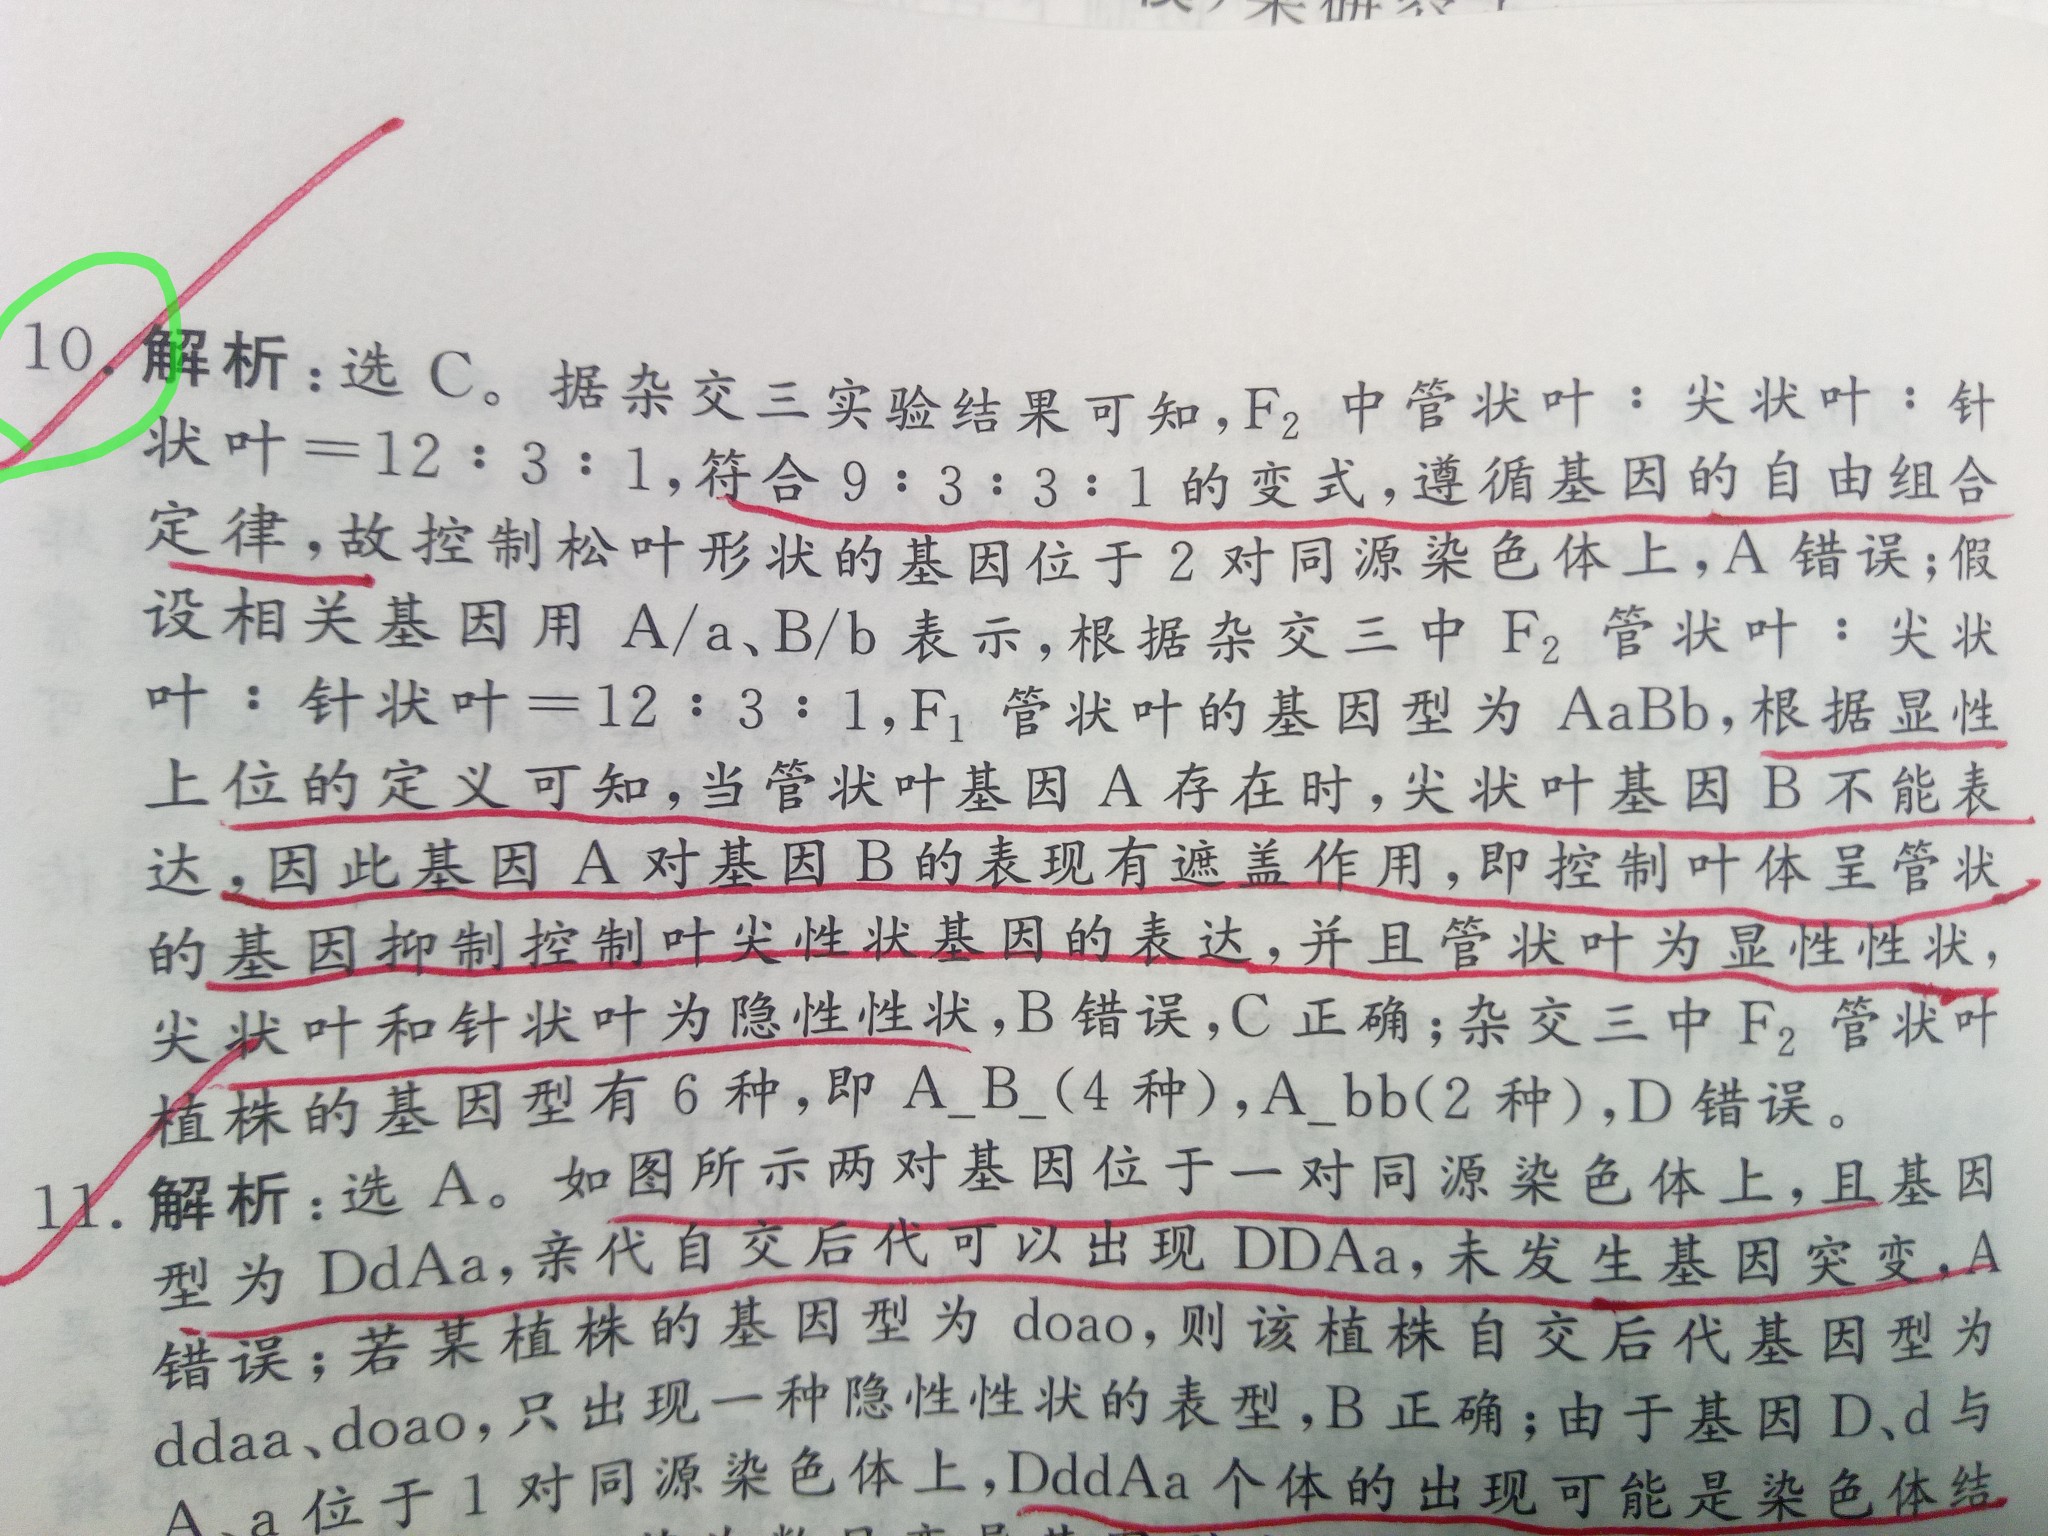 10. 解析:选 C。据杂交三实验结果可知,F₂ 中管状叶∶尖状叶∶针
状叶=12∶3∶1,符合 9∶3∶3∶1 的变式,遵循基因的自由组合
定律,故控制松叶形状的基因位于 2 对同源染色体上,A 错误;假
设相关基因用 A/a、B/b 表示,根据杂交三中 F₂ 管状叶∶尖状
叶∶针状叶=12∶3∶1,F₁ 管状叶的基因型为 AaBb,根据显性
上位的定义可知,当管状叶基因 A 存在时,尖状叶基因 B 不能表
达,因此基因 A 对基因 B 的表现有遮盖作用,即控制叶体呈管状
的基因抑制控制叶尖性状基因的表达,并且管状叶为显性性状,
尖状叶和针状叶为隐性性状,B 错误,C 正确;杂交三中 F₂ 管状叶
植株的基因型有 6 种,即 A_B_(4 种),A_bb(2 种),D 错误。
11. 解析:选 A。如图所示两对基因位于一对同源染色体上,且基因
型为 DdAa,亲代自交后代可以出现 DDAa,未发生基因突变,A
错误;若某植株的基因型为 doao,则该植株自交后代基因型为
ddaa、doao,只出现一种隐性性状的表型,B 正确;由于基因 D、d 与
A、a 位于 1 对同源染色体上,DddAa 个体的出现可能是染色体结